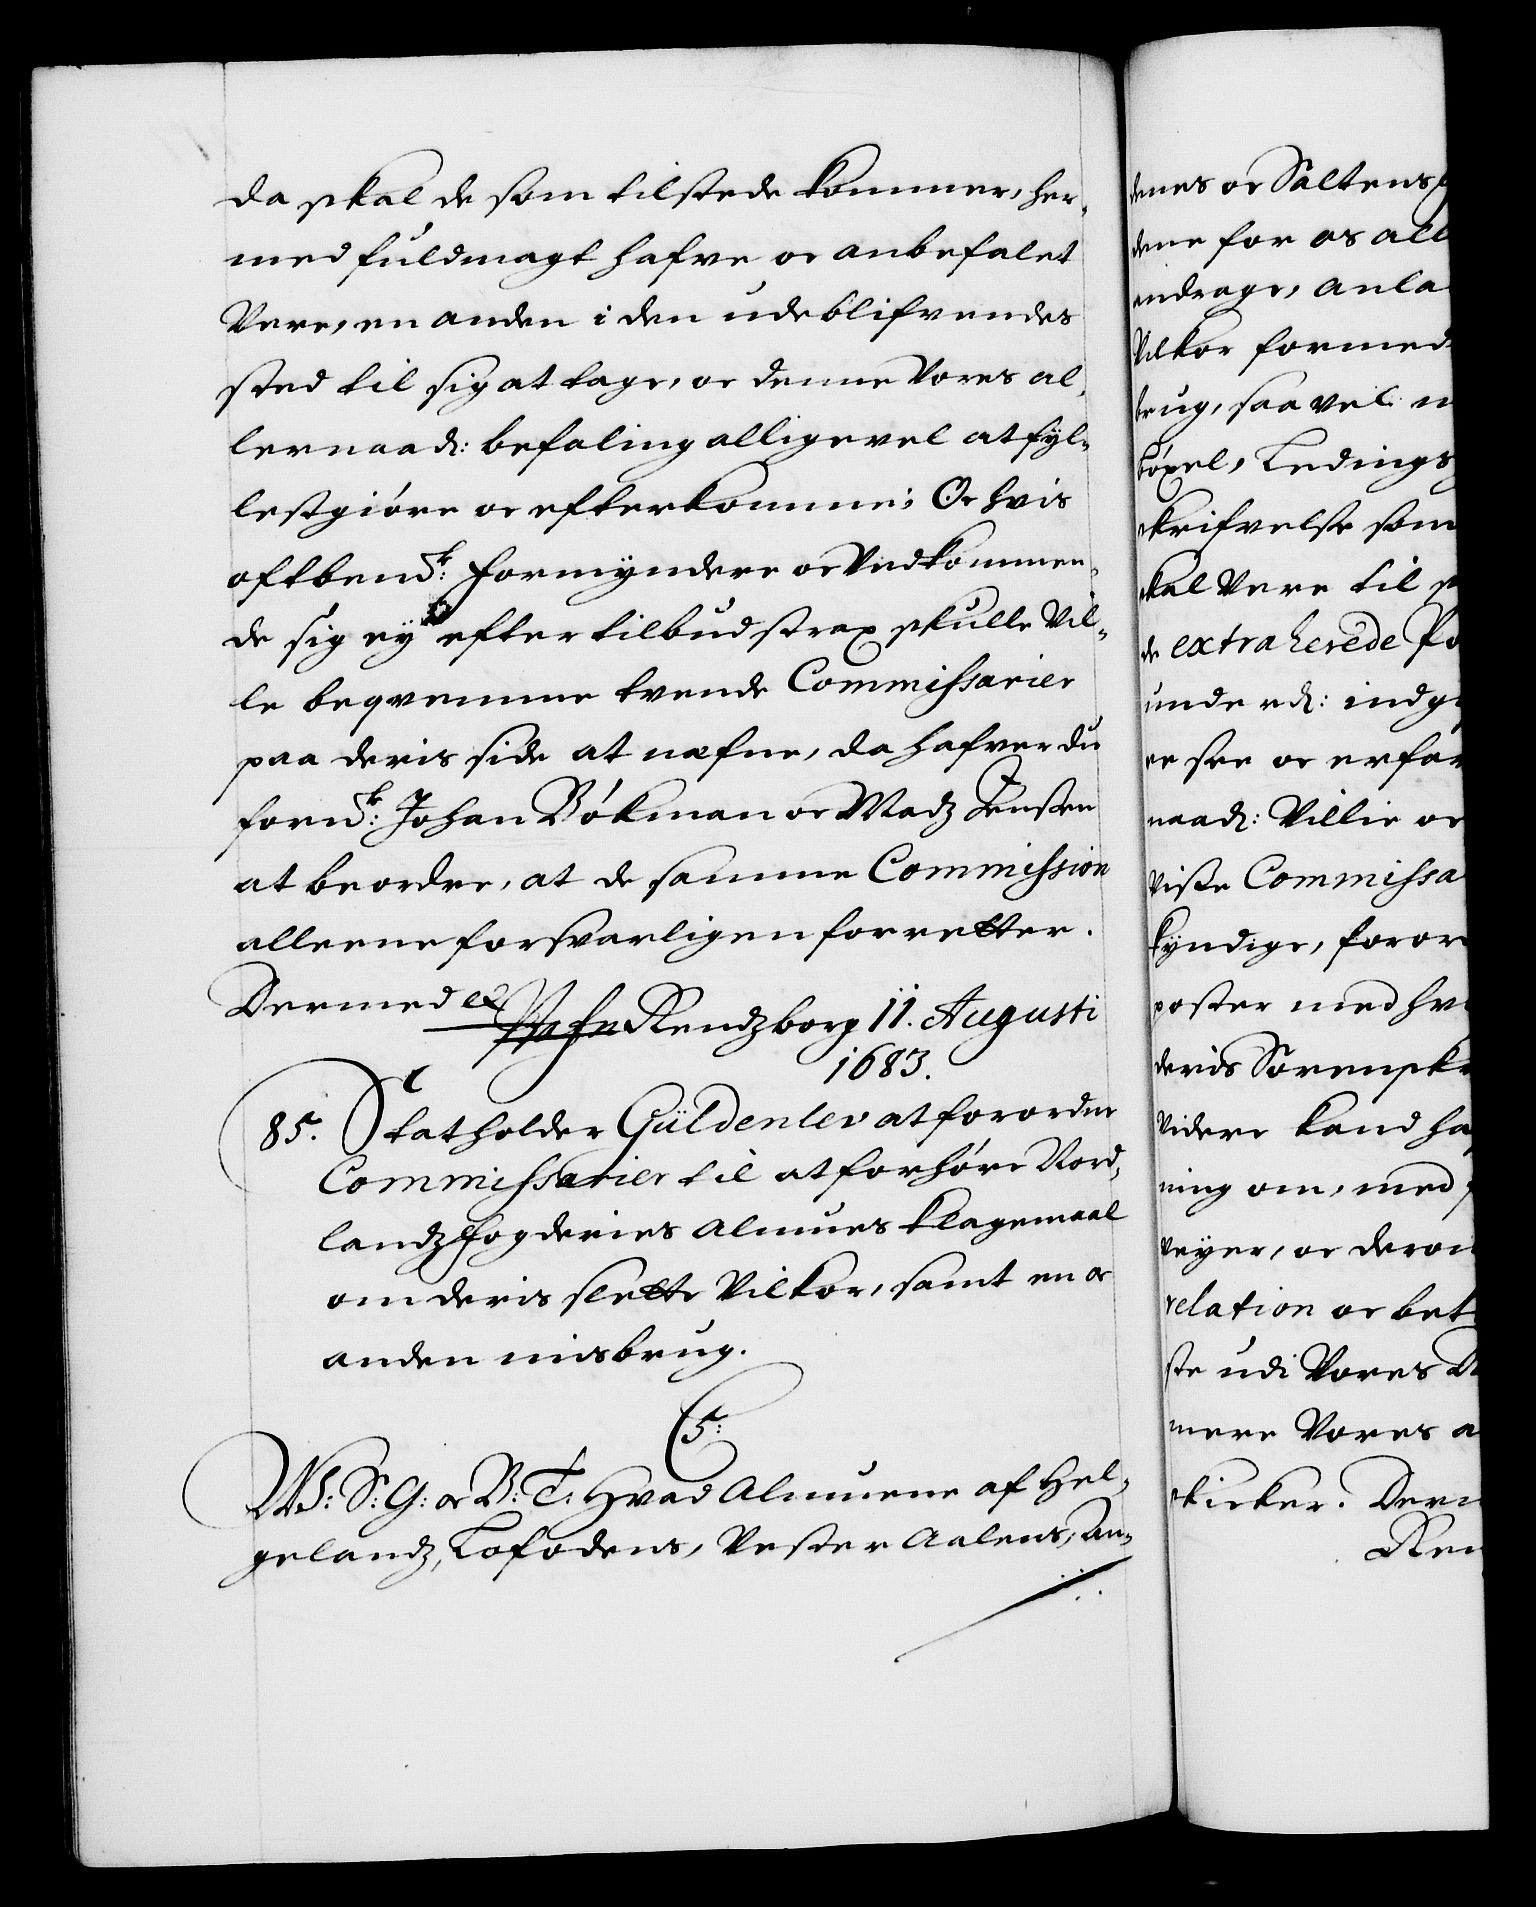 da skal de som tilstede kommer, her,
med fuldmagt hafve oc anbefalet
Vere, en anden i den udeblifvendes
sted til sig at tage, oc denne Vores al,
lernaad: befaling alligevel at fyl,
lestgiøre oc efterkomme; Oc hvis
oftbend.te: formyndere oc Vedkommen,
de sig ey efter tilbud strax skulle Vil,
le beqvemme tvende Commissarier
paa deris side at nefne, da hafver du
fornd.te: Johan Bökman oc Madz Jensen
at beordre, at de samme Commission
alleene forsvarligen forretter.
Dermed etc
Rendzborg 11. Augusti
1683.
85. Statholder Güldenlev at forordne
Commissarier til at forhøre Nord,
landz fogderies Almues Klagemaal
om deris slette Vilkor, samt en oc
anden misbrug.
C5:
W: S: G: oc B: T: Hvad Almuene af Hel,
gelandz, Lofodens, Vester Aalens, An,
denes oc Saltens
dene for os all
andrage, anla
Vilkor formed
brug, saavel
Ledings
skrifvelse som
skal Vere til
de extraherede Po
underd: indg
ee see oc erfar
naad: Villie oc
Visse Commissa
kyndige, foror
poster med hv
deris Sorenskr
Videre kand ha
ning om, med
veyer, oc derom
relation oc bet
ste udi Vores
mere Vores a
skicker. Derm
Ren